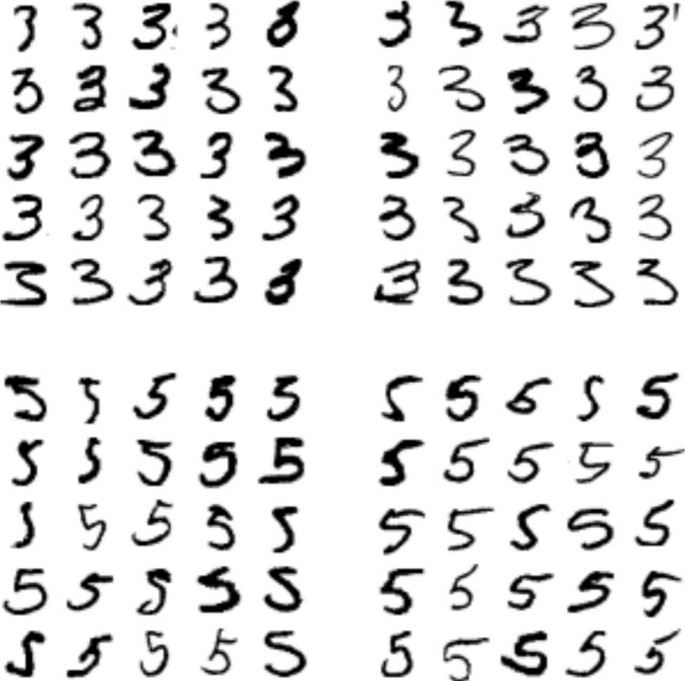 3 3 3 3 8 3 3 3 3 3
3 3 3 3 3 3 3 3 3 3
3 3 3 3 3 3 3 3 3 3
3 3 3 3 3 3 3 3 3 3
3 3 3 3 3 3 3 3 3 3
5 5 5 5 5 5 5 5 5 5
5 5 5 5 5 5 5 5 5 5
5 5 5 5 5 5 5 5 5 5
5 5 5 5 5 5 5 5 5 5
5 5 5 5 5 5 5 5 5 5